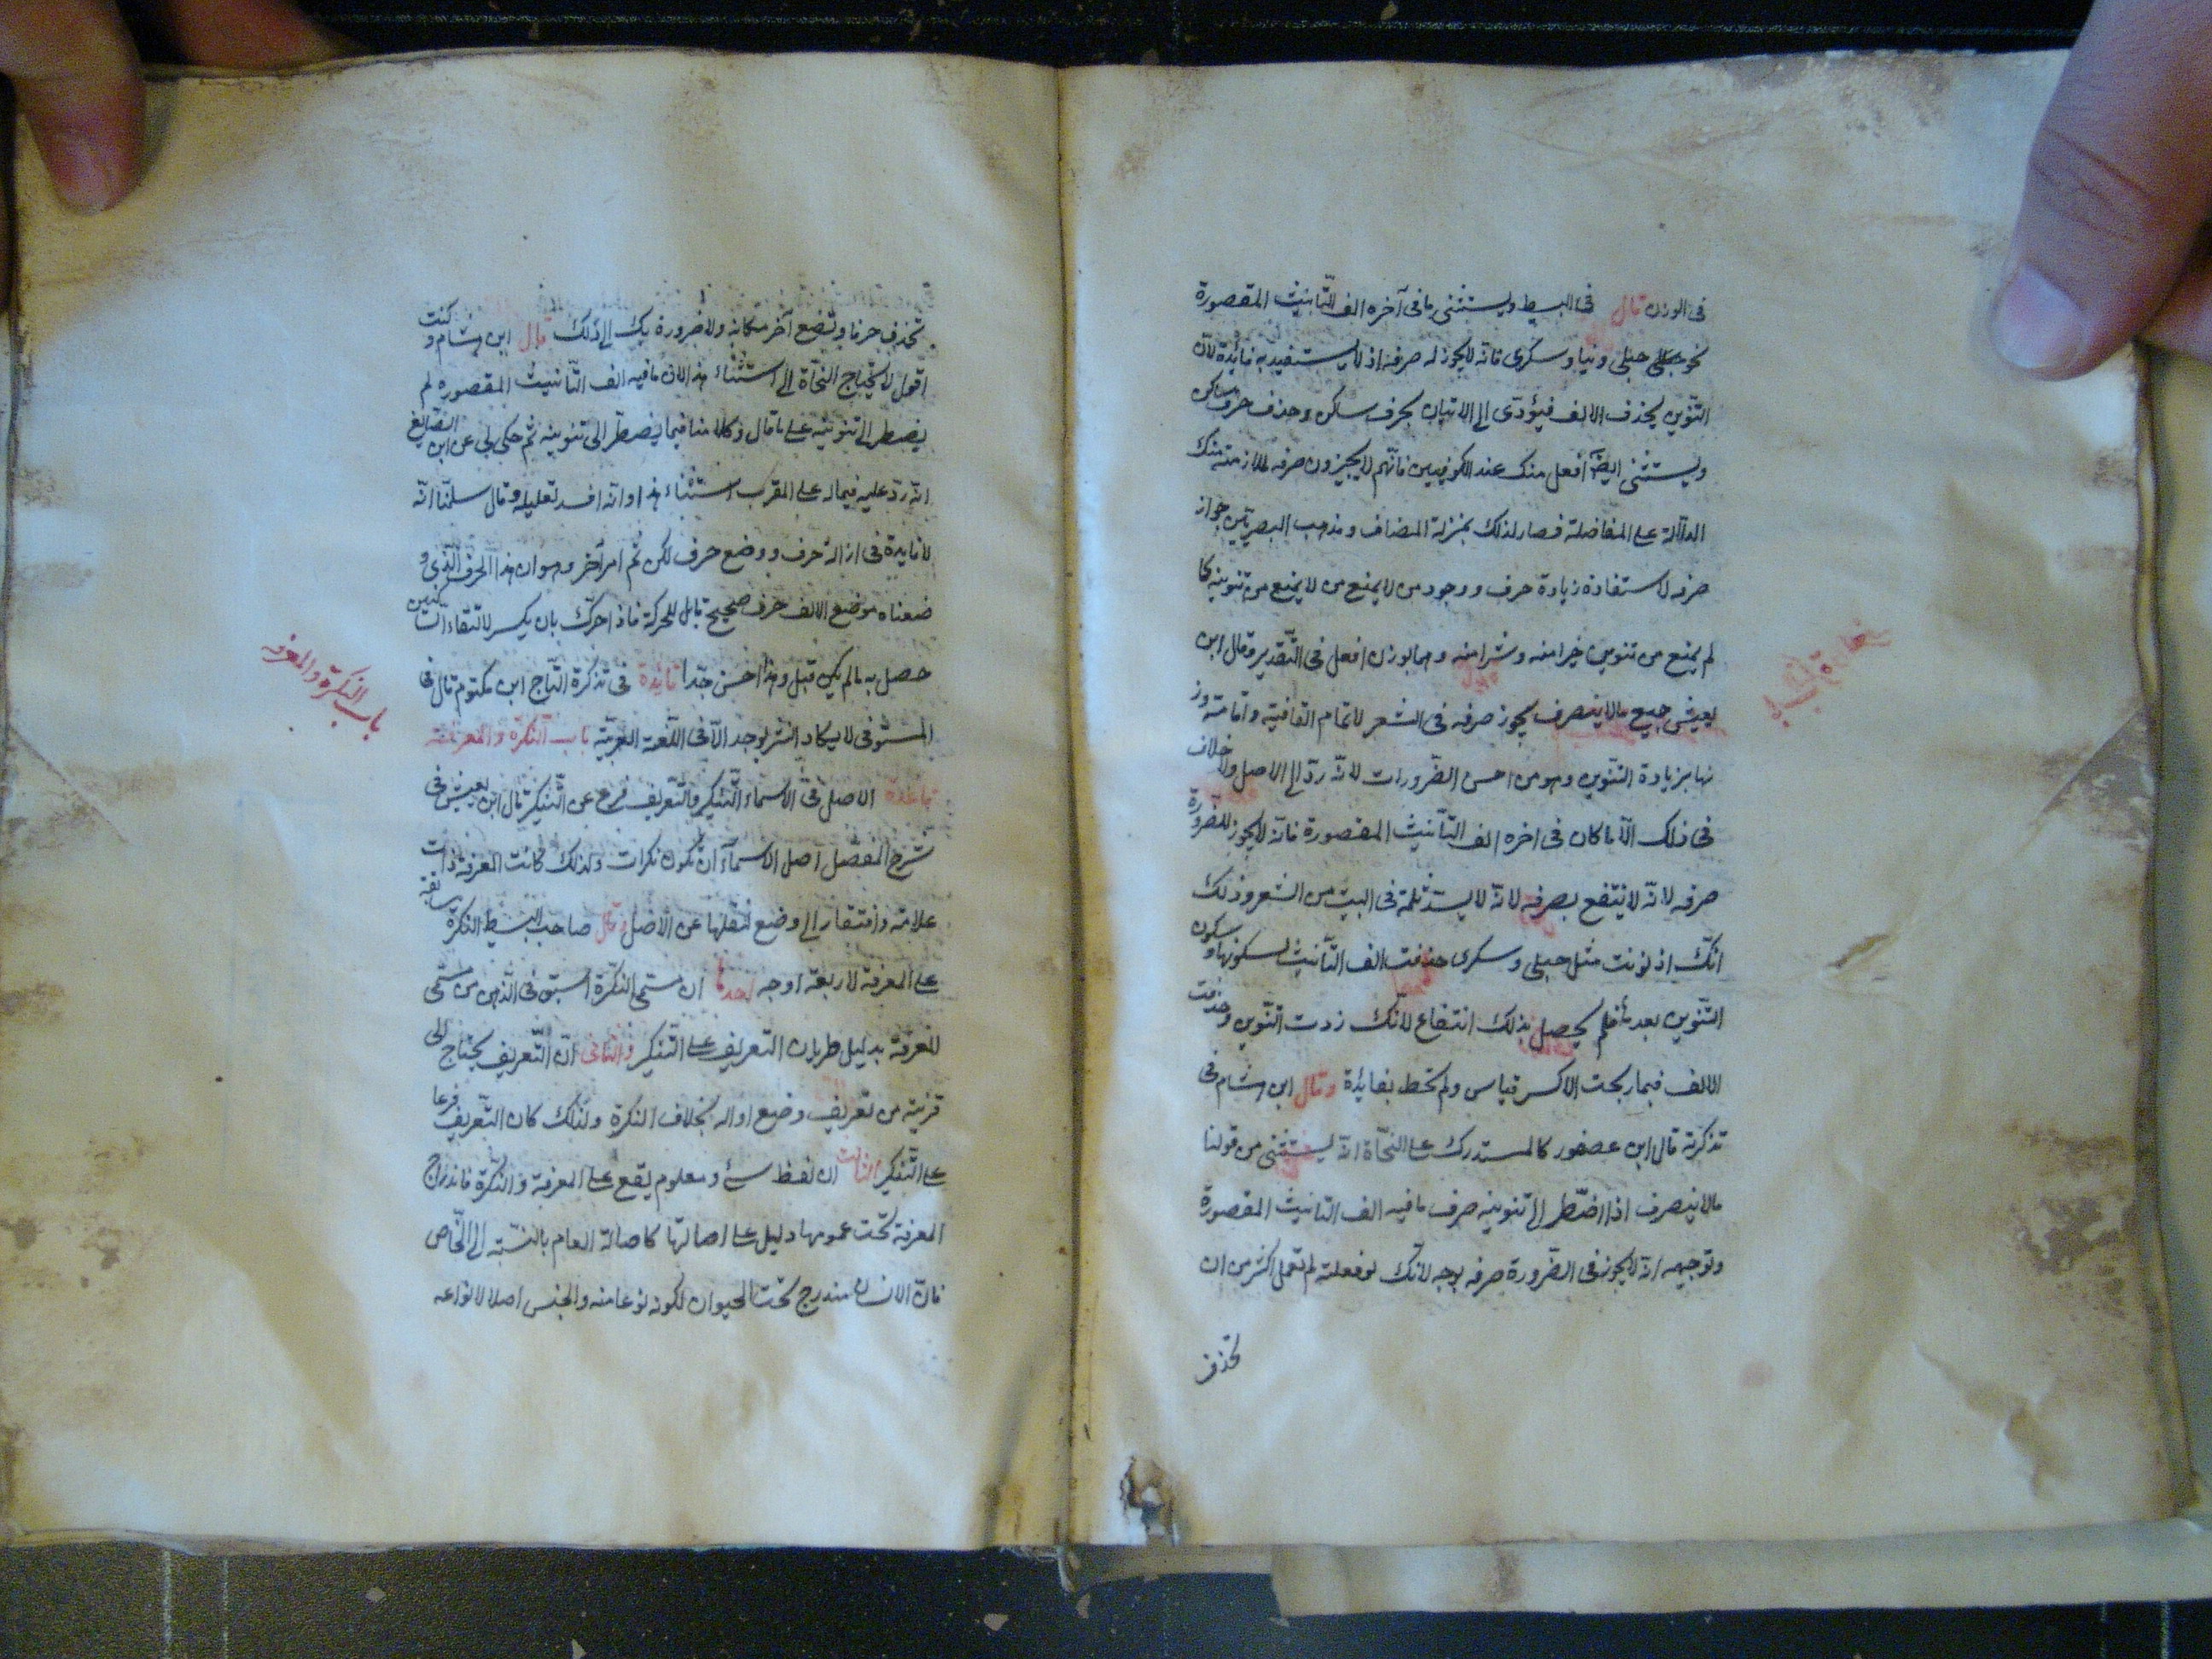 فى الوزن قال فى البسيط ويستثنى ما فى آخره الف التّأنيث المقصورة
نحو حبلى ودنيا وسكرى فانّه لا يجوز له صرفه اذ لا يستفيد به فائدة لانّ
التّنوين يحذف الالف فيؤدّى الى الاتيان بحرف ساكن وحذف حرف ساكن
ويستثنى ايضًا أفعل منك عند الكوفيين فانّهم لا يجيزون صرفه لملازمته منك
الدلالة على المفاضلة فصار لذلك بمنزلة المضاف ومذهب البصريّين جواز
صرفه لاستفادة زيادة حرف ووجود من لا يمنع من لا يمنع من تنوينه كما
لم يمنع من تنوين خيرا منه وشرا منه وهما بوزن افعل فى التّقدير وقال ابن
يعيش جميع مالا ينصرف يجوز صرفه فى الشعر لاتمام القافية واقامة وز
نها بزيادة التّنوين وهو من احسن الضّرورات لانّه ردّ الى الاصل ولا خلاف
فى ذلك الّا ما كان فى اخره الف التّأنيث المقصورة فانّه لا يجوز للضرورة
صرفه لانّه لا ينتفع بصرفه لانّه لا يسدّ ثلمة فى البيت من الشعر وذلك
انّك اذ نونت مثل حبلى وسكرى حذفت الف التّأنيث لسكونها وسكون
التّنوين بعدها فلم يحصل بذلك انتفاع لانّك زدت التّنوين وحذفت
الالف فما ربحت الا كسر قياس ولم تحظ بفائدة وقال ابن هشام فى
تذكرته قال ابن عصفور كالمستدرك على النّحاة انّه يستثنى من قولنا
مالا ينصرف اذا اضطّر الى تنوينه صرف ما فيه الف التّانيث المقصورة
وتوجيهه انّه لا يجوز فى الضّرورة صرفه بوجه لانّك لو فعلته لم تعمل اكثر من ان
تحذف
تحذف حرفا وتضع آخر مكانه ولا ضرورة بك الى ذلك قال ابن هشام وكنت
اقول لا يحتاج النّحاة الى استثناء هذا لان ما فيه الف التّأنيث المقصوره لم
يضطر الى تنوينه على ما قال وكلامنا فيما يضطّر الى تنوينه ثم حكى لى عن ابن الضّايع
انّه ردّ عليه فيما له على المقرب استثناء هذا وانّه افسد تعليله وقال سلمنا انّه
لا فايدة فى ازالة حرف ووضع حرف لكن ثمّ امر آخر وهو ان هذا الحرف الّذى و
ضعناه موضع الالف حرف صحيح قابل للحركة فاذا حرّك بان يكسر لالتقاء السّاكنين
حصل به مالم يكن قبل وهذا احسن جدّا فائدة فى تذكرة التّاج ابن مكتوم قال فى
المستوفى لا يكاد يوجد الّا فى اللّغة العربيّة باب النّكرة والمعرفة
قاعدة الاصل فى الاسماء التّنكير والتّعريف فرع عن التّنكير قال ابن يعيش فى
شرح المفصّل اصل الاسماء ان تكون نكرات ولذلك كانت المعرفة ذات
علامة وافتقار الى وضع لنقلها عن الاصل وقال صاحب البسيط النكرة سابقة
على المعرفة لاربعة اوجه احدها ان مسمّى النّكرة اسبق فى الذّهن من مسمّى
المعرفة بدليل طريان التعريف على التّنكير والثّانى انّ التّعريف يحتاج الى
قرينة من تعريف وضع او اله بخلاف النكرة ولذلك كان التّعريف فرعا
على التّنكير الثالث ان لفظ شئ ومعلوم يقع على المعرفة والنّكرة فاندراج
المعرفة تحت عمومها دليل على اصالتها كاصالة العام بالنّسبة الى الخّاص
فانّ الانسان مندرج تحت الحيوان لكونه نوعا منه والجنس اصلا لانواعه
باب النّكرة والمعرفه